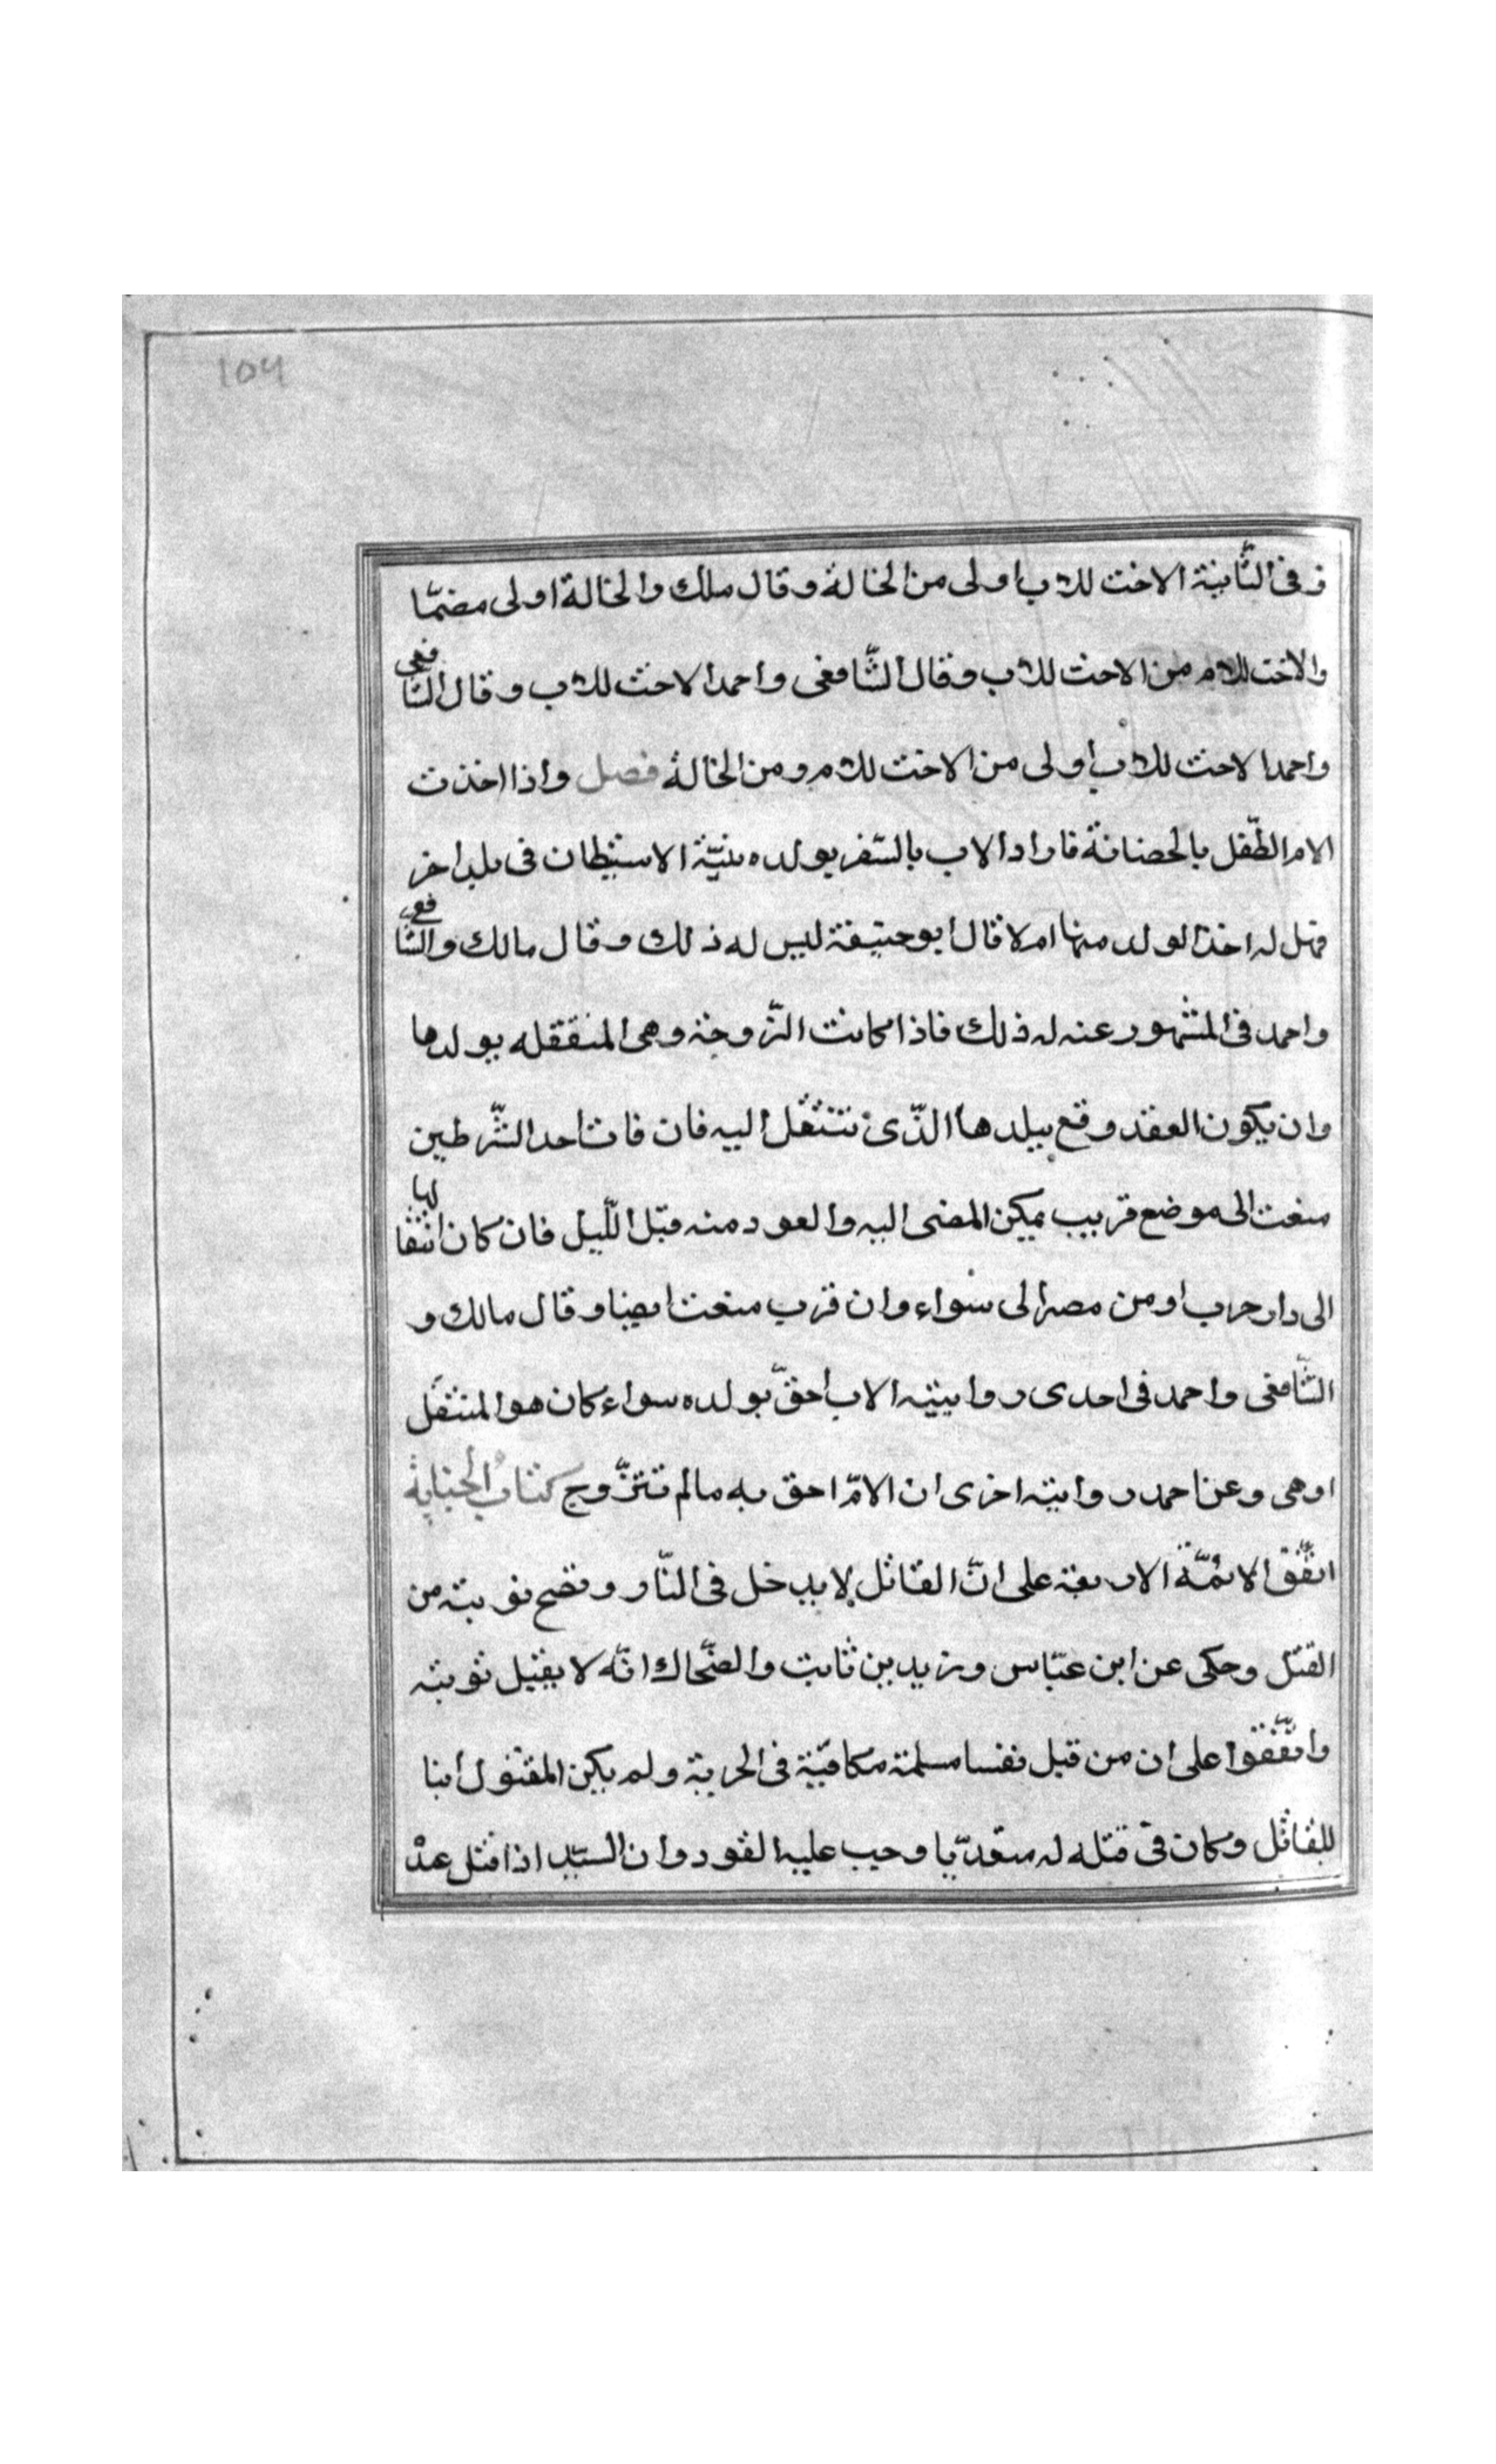 104
و فى الثانية الاخت للاب اولى من الخالة و قال ملك والخالة اولى منهما
والاخت للام من الاخت للاب وقال الشّافعى واحمد الاخت للاب و قال الشافعى
واحمد الاخت للاب اولى من الاخت للام ومن الخالة فصل واذا اخذت
الام الطّفل بالحضانة فاراد الاب بالسّفر بولده بنيّة الاستيطان فى بلد اخر
فهل له اخذ الولد منها ام لا قال ابو حنيفة ليس له ذلك وقال مالك والشافعى
واحمد فى المشهور عنه له ذلك فاذا كانت الزّوجة وهى المنتقله بولدها
وان يكون العقد وقع ببلدها الذّى تنتقل اليه فان فات احد الشّرطين
منعت الى موضع قريب يمكن المضى اليه والعود منه قبل اللّيل فان كان انتقالها
الى دار حرب او من مصر الى سواء وان قرب منعت ايضا وقال مالك و
الشّافعى واحمد فى احدى روايتيه الاب احقّ بولده سواء كان هو المنتقل
او هى وعن احمد رواية اخرى ان الامّ احق به مالم تتزّوج كتاب الجناية
اتّفق الائمّة الاربعة على انّ القاتل لا يدخل فى النّار وتصح توبته من
القتل وحكى عن ابن عبّاس وزيد بن ثابت والضّحاك انّه لا يقبل توبته
واتّفقوا على ان من قتل نفسا مسلمة مكافيّة فى الحرية ولم يكن المقتول ابنا
للقاتل وكان فى قتله له متعدّيا وجب عليه القود وان السيّد اذا قتل عبد